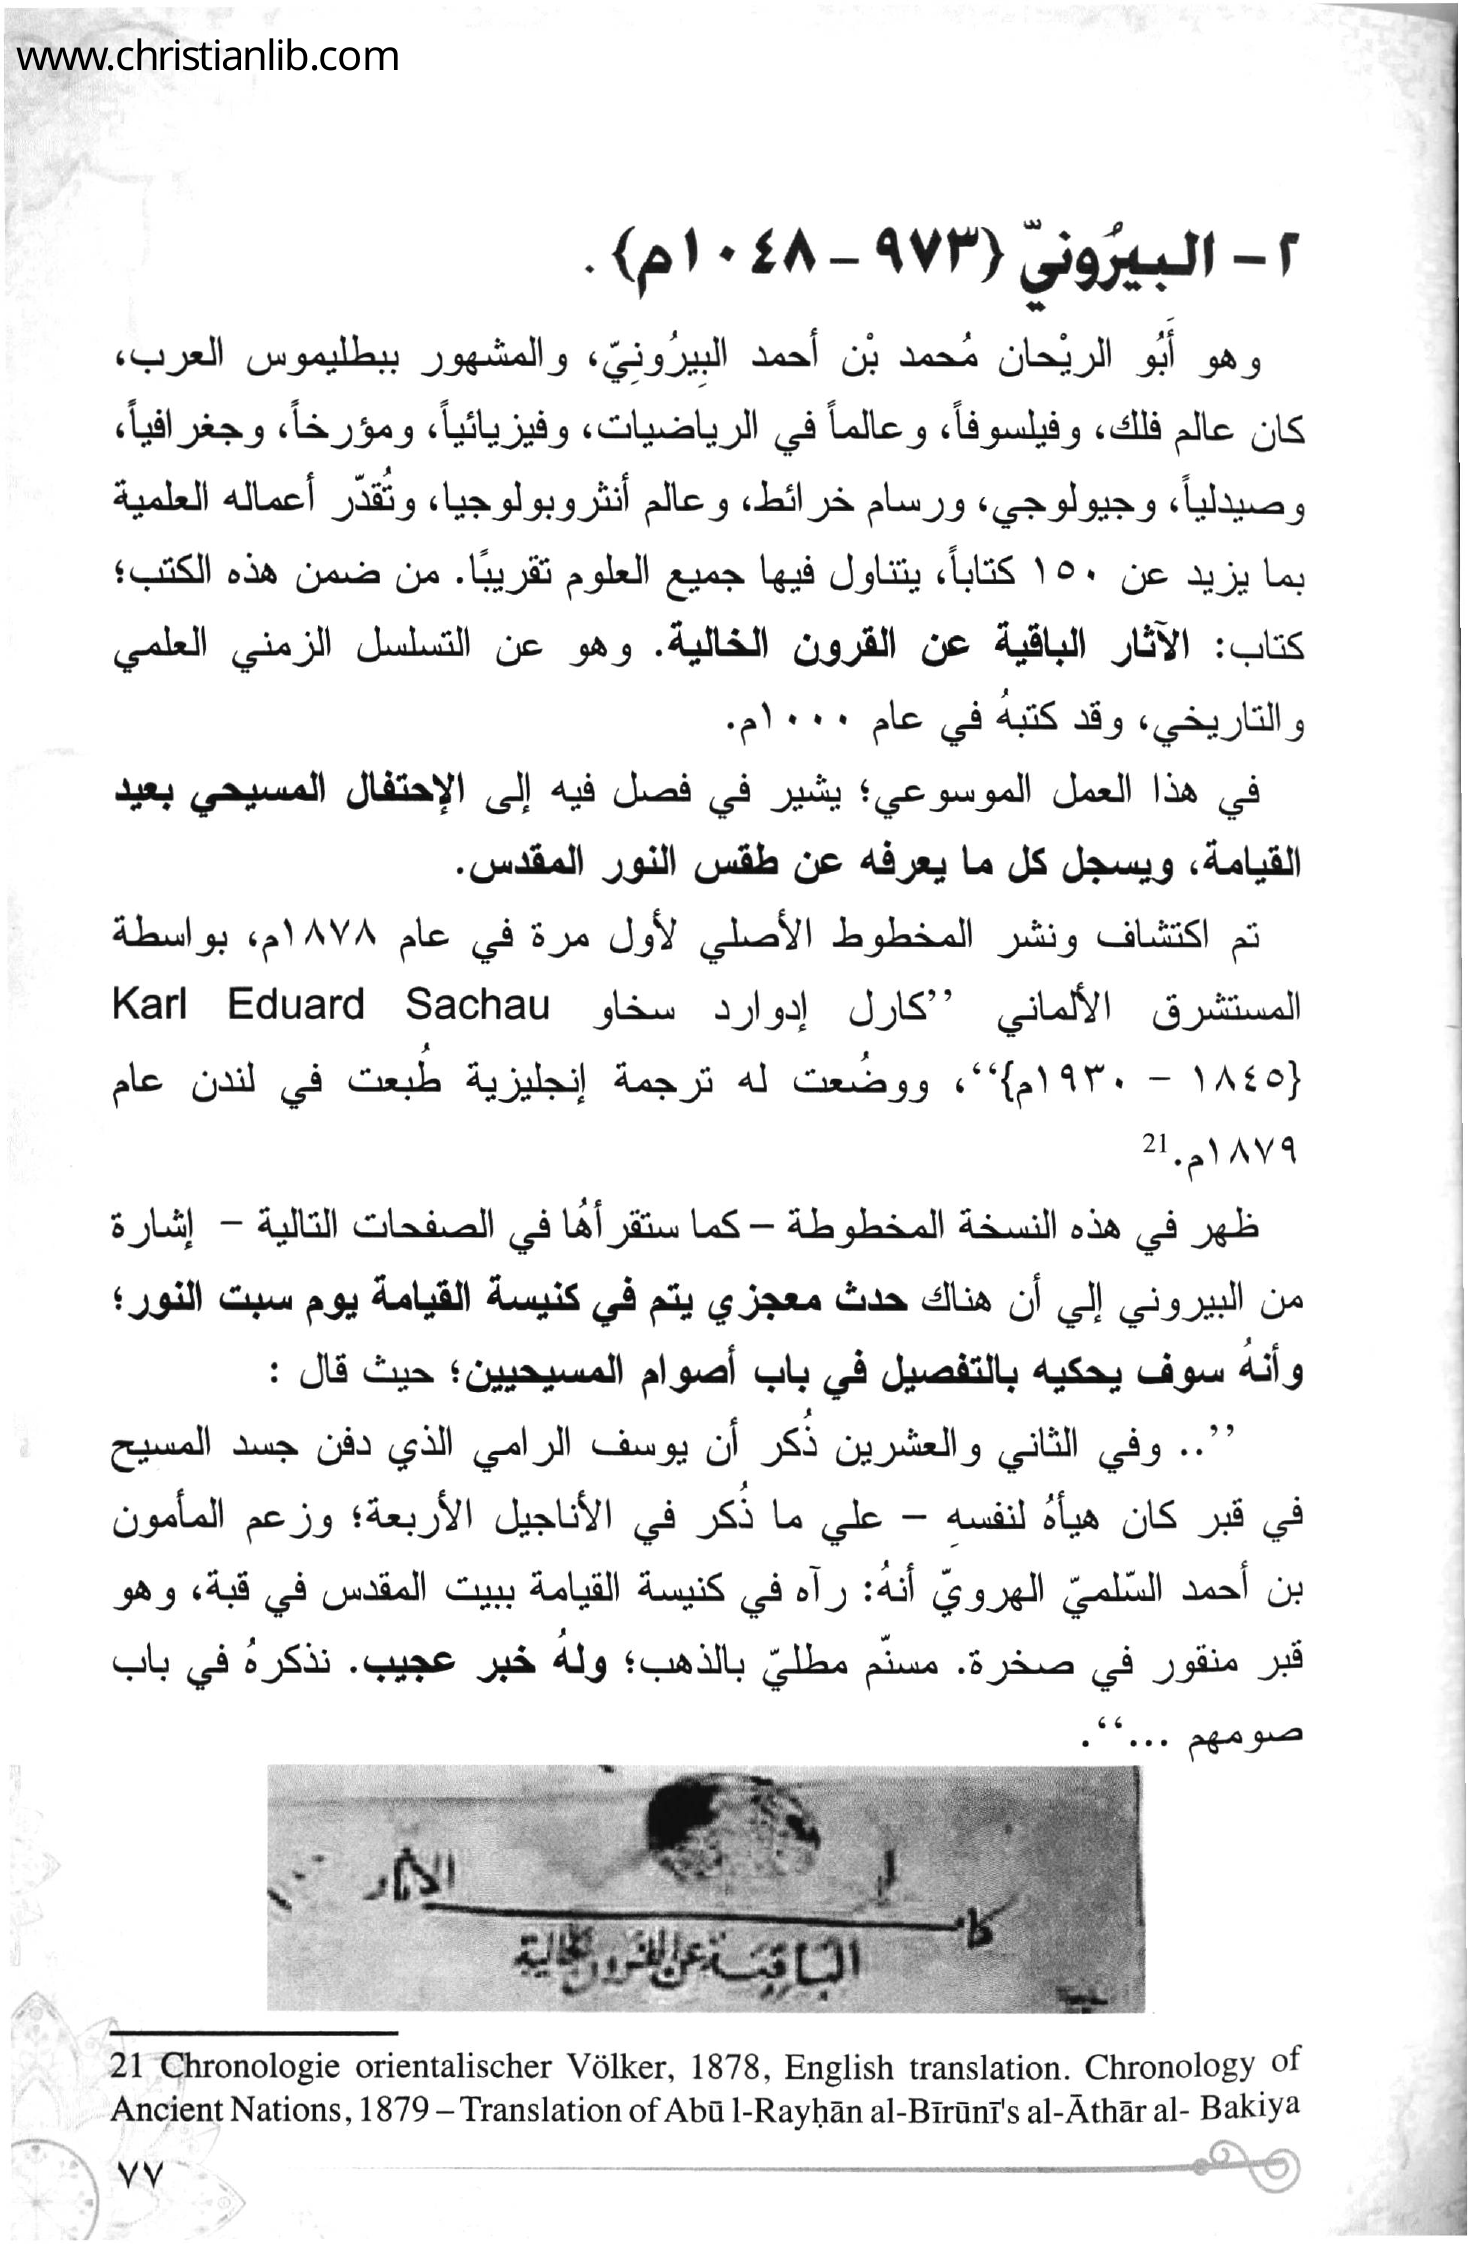 www.christianlib.com
٢- البيرُونيّ {٩٧٣ – ١٠٤٨م} .
وهو أَبُو الريْحان مُحمد بْن أحمد البِيرُونِيّ، والمشهور ببطليموس العرب،
كان عالم فلك، وفيلسوفاً، وعالماً في الرياضيات، وفيزيائياً، ومؤرخاً، وجغرافياً،
وصيدلياً، وجيولوجي، ورسام خرائط، وعالم أنثروبولوجيا، وتُقدّر أعماله العلمية
بما يزيد عن ١٥٠ كتاباً، يتناول فيها جميع العلوم تقريبًا. من ضمن هذه الكتب؛
كتاب: الآثار الباقية عن القرون الخالية. وهو عن التسلسل الزمني العلمي
والتاريخي، وقد كتبهُ في عام ١٠٠٠م.
في هذا العمل الموسوعي؛ يشير في فصل فيه إلى الإحتفال المسيحي بعيد
القيامة، ويسجل كل ما يعرفه عن طقس النور المقدس.
تم اكتشاف ونشر المخطوط الأصلي لأول مرة في عام ١٨٧٨م، بواسطة
المستشرق الألماني ’’كارل إدوارد سخاو Karl Eduard Sachau
{١٨٤٥ – ١٩٣٠م}‘‘، ووضُعت له ترجمة إنجليزية طُبعت في لندن عام
١٨٧٩م.21
ظهر في هذه النسخة المخطوطة – كما ستقرأهُا في الصفحات التالية – إشارة
من البيروني إلي أن هناك حدث معجزي يتم في كنيسة القيامة يوم سبت النور؛
وأنهُ سوف يحكيه بالتفصيل في باب أصوام المسيحيين؛ حيث قال :
’’.. وفي الثاني والعشرين ذُكر أن يوسف الرامي الذي دفن جسد المسيح
في قبر كان هيأهُ لنفسهِ – علي ما ذُكر في الأناجيل الأربعة؛ وزعم المأمون
بن أحمد السّلميّ الهرويّ أنهُ: رآه في كنيسة القيامة ببيت المقدس في قبة، وهو
قبر منقور في صخرة. مسنّم مطليّ بالذهب؛ ولهُ خبر عجيب. نذكرهُ في باب
صومهم ...‘‘.
الاثار
الباقية عن القرون الخالية
21 Chronologie orientalischer Völker, 1878, English translation. Chronology of
Ancient Nations, 1879 – Translation of Abū l-Rayḥān al-Bīrūnī's al-Āthār al- Bakiya
٧٧